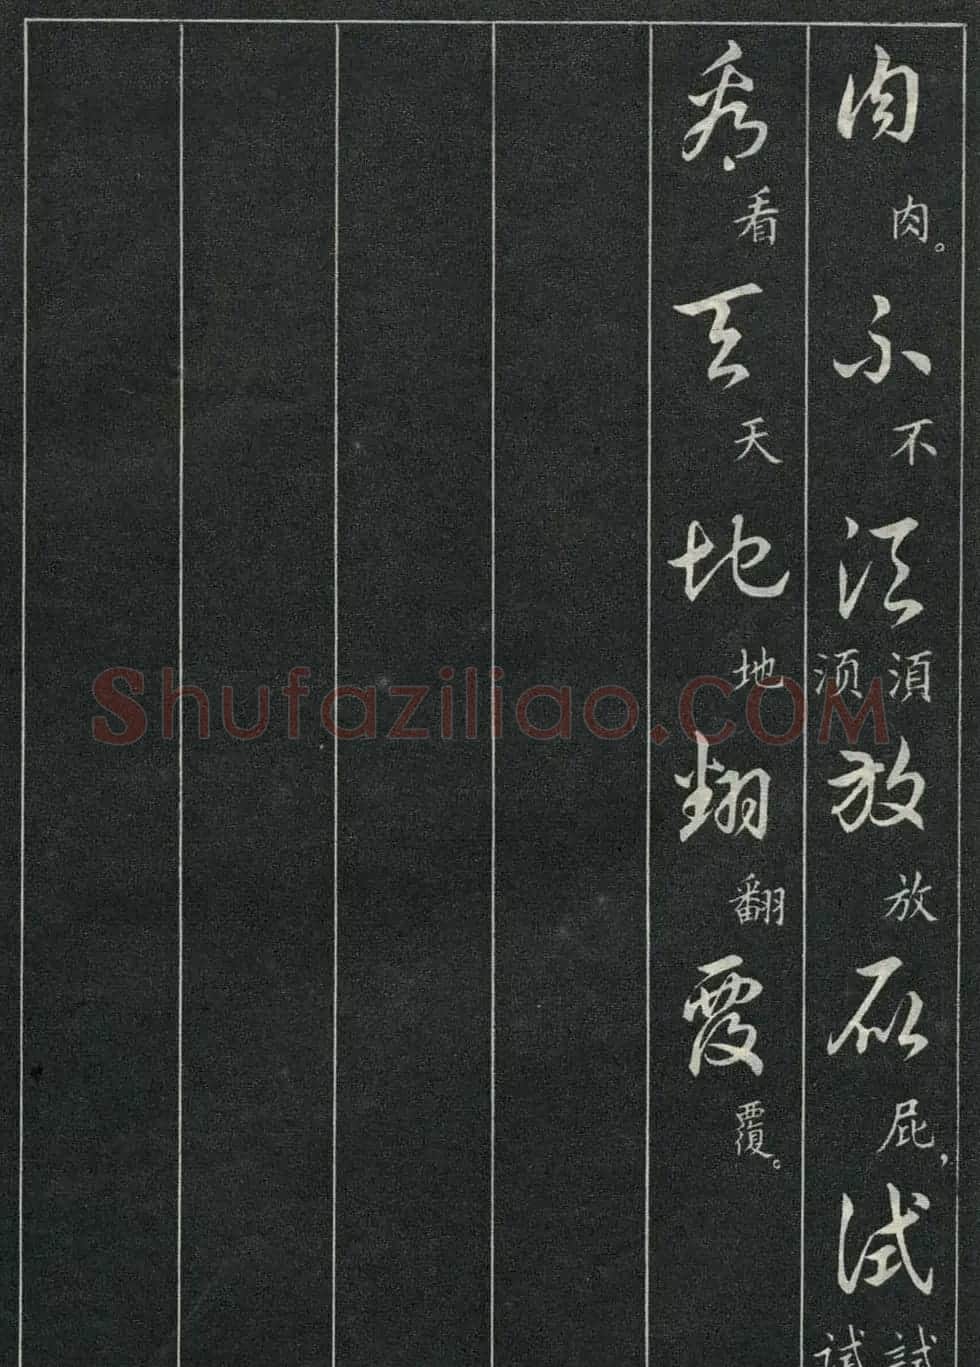 肉肉。不不须须須放放屁屁,试试試
看看天天地地翻翻覆覆。
Shufaziliao.COM